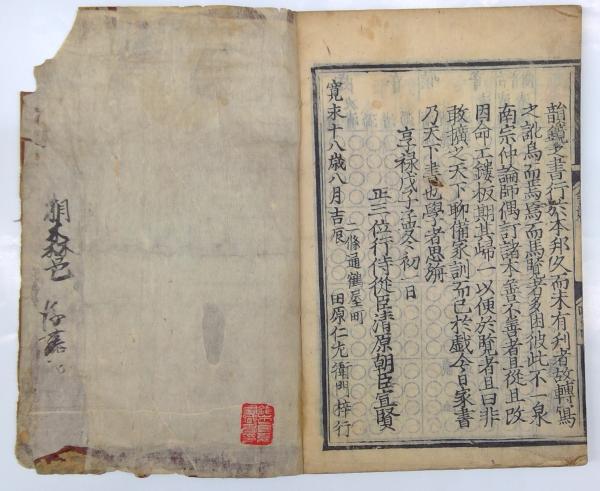 韻鏡之書行於本邦久而未有刊者故轉寫
之訛烏而焉焉而馬覽者多困彼此不一泉
南宗仲論師偶訂諸本善不善者且從且改
因命工鏤板期其歸一以便於覽者且曰非
敢擴之天下聊備家訓而已於戲今日家書
乃天下書也學者思旃
享祿戊子孟冬初一日
正三位行侍從臣清原朝臣宣賢
寬永十八歲八月吉辰
二條通鶴屋町
田原仁左衛門梓行